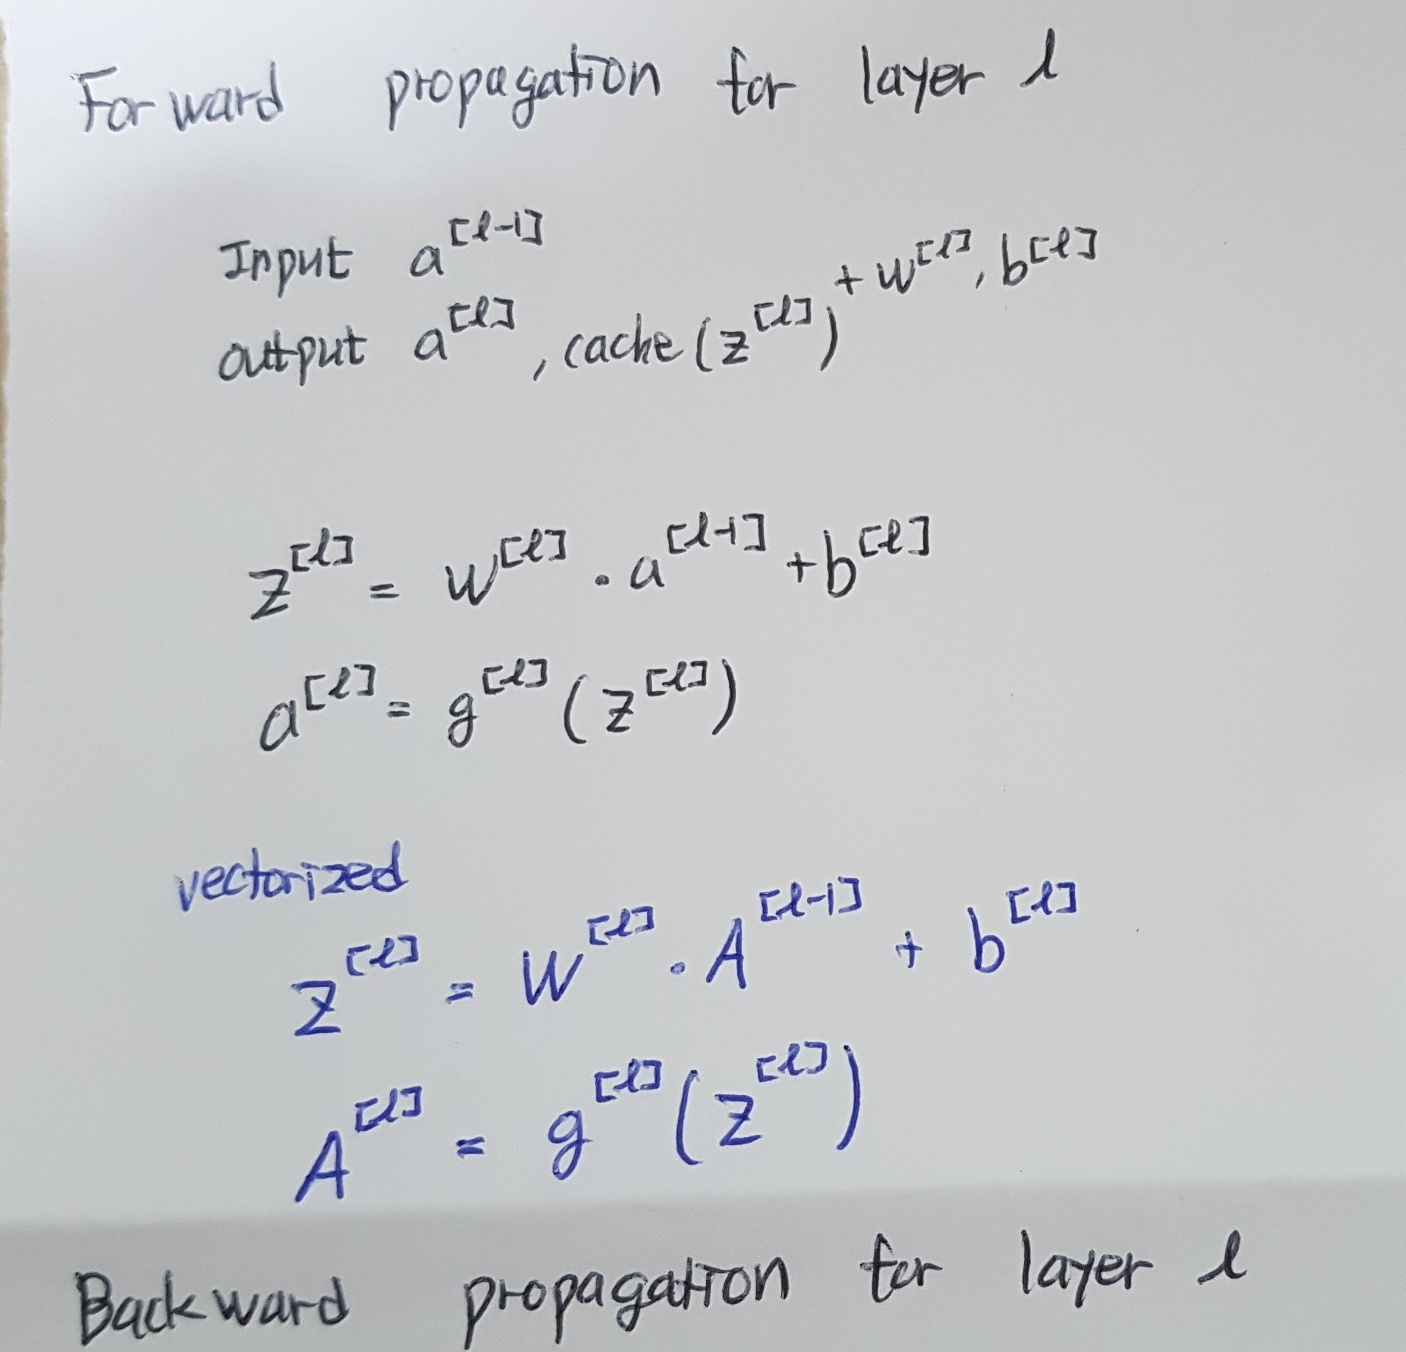 Forward propagation for layer l
Input a^[l-1]
output a^[l], cache (z^[l]) + w^[l], b^[l]
z^[l] = w^[l] · a^[l-1] + b^[l]
a^[l] = g^[l] (z^[l])
vectorized
Z^[l] = W^[l] · A^[l-1] + b^[l]
A^[l] = g^[l] (Z^[l])
Backward propagation for layer l